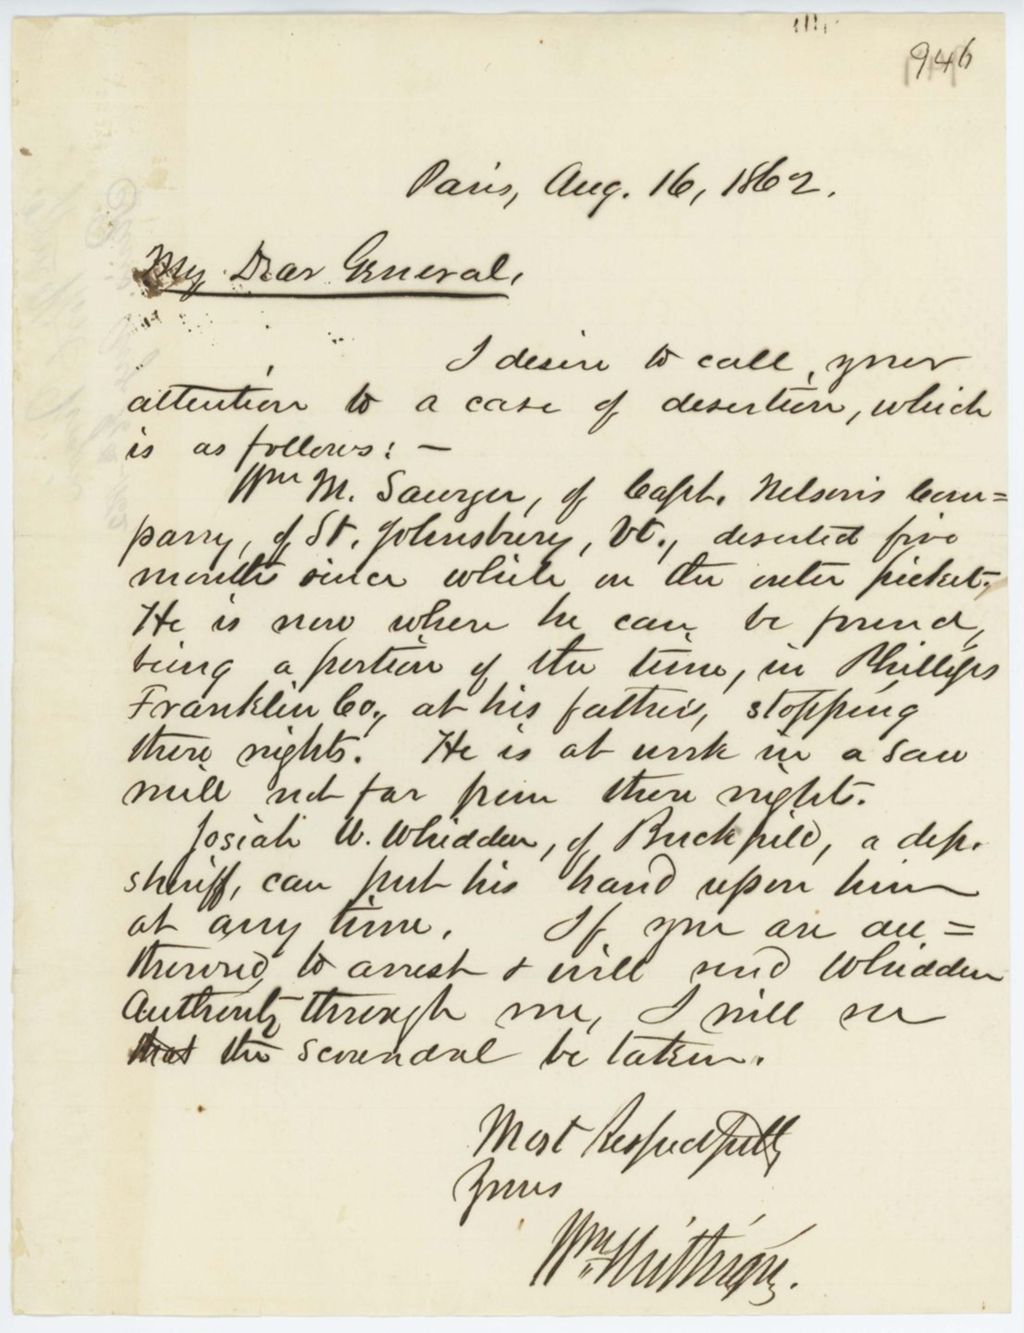 946
Paris, Aug. 16, 1862.
My Dear General,
I desire to call, your
attention to a case of desertion, which
is as follows: —
Wm M. Sawyer, of Capt. Nelson's Com=
pany, of St. Johnsbury, Vt., deserted five
months since while on the outer picket.
He is now where he can be found,
being a portion of the time, in Phillips
Franklin Co., at his father's, stopping
there nights. He is at work in a saw
mill not far from there nights.
Josiah W. Whidden, of Buckfield, a dep.
sheriff, can put his hand upon him
at any time. If you are au=
thorized to arrest & will send Whidden
Authority through me, I will see
that the scoundrel be taken.
Most Respectfully
Yours
Wm